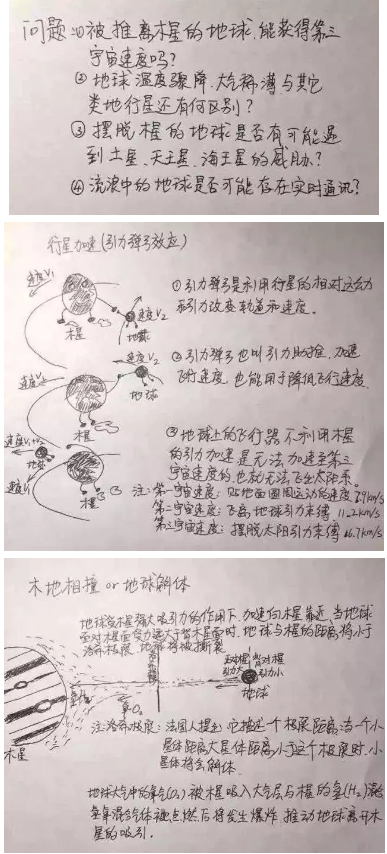 问题:①被推离木星的地球,能获得第三
宇宙速度吗?
②地球温度骤降、大气稀薄与其它
类地行星还有何区别?
③摆脱木星的地球是否有可能遇
到土星、天王星、海王星的威胁?
④流浪中的地球是否可能存在实时通讯?
行星加速(引力弹弓效应)
速度V₁
木星
速度V₂
地球
①引力弹弓是利用行星的相对运动
和引力改变轨道和速度。
速度V₁
速度V₂
木星
地球
②引力弹弓也叫引力助推,加速
飞行速度,也能用于降低飞行速度.
速度V₁+V₂
地球
速度V₁
木星
③地球上的飞行器不利用木星
的引力加速是无法加速至第三
宇宙速度的,也就无法飞出太阳系。
注:第一宇宙速度:贴地面圆周运动的速度 7.9km/s
第二宇宙速度:飞离地球引力束缚 11.2km/s
第三宇宙速度:摆脱太阳引力束缚 16.7km/s
木地相撞 or 地球解体
地球受木星强大吸引力的作用下,加速向木星靠近,当地球
面对木星面受力远大于背木星面时,地球与木星的距离将小于
洛希极限,地球将被撕裂
正对木星
引力大
背对木星
引力小
地球
氧O₂
木星
注:洛希极限:法国人提出,它描述一个极限距离:当一个小
星体距离大星体距离小于这个极限时,小
星体将会解体.
地球大气中的氧气(O₂)被木星吸入大气层与木星的氢(H₂)混
氢氧混合气体被点燃后将发生爆炸,推动地球离开木
星的吸引.